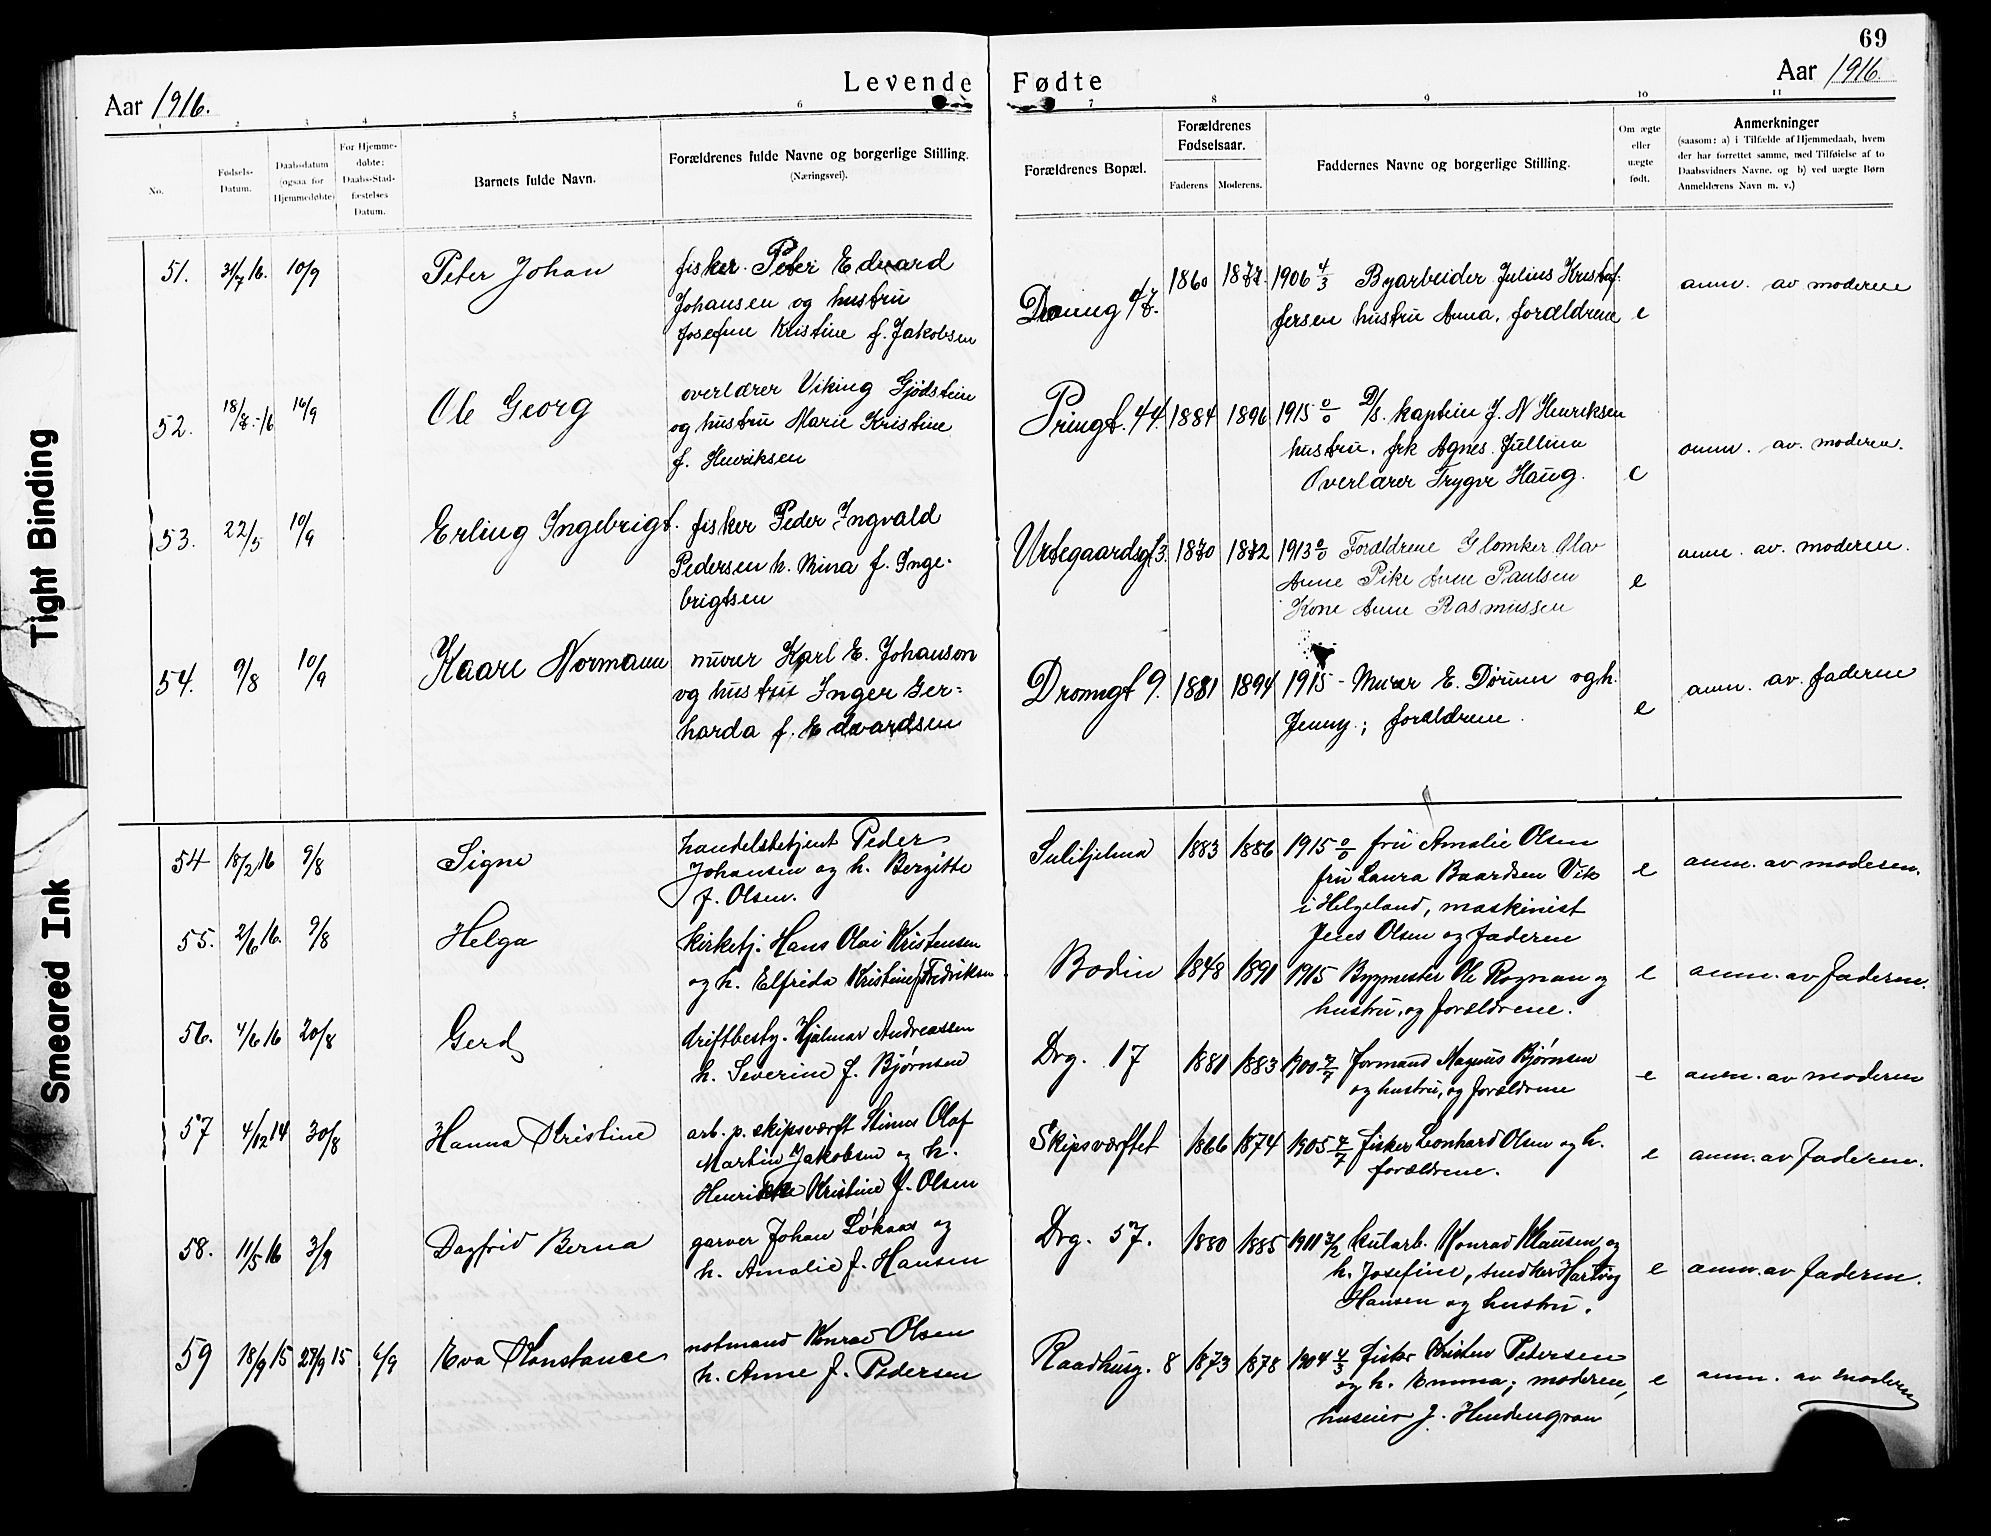 69
Levende Fødte
Aar 1916.
Aar 1916.
1 2 3 4 5 6 7 8 9 10 11
No.
Fødsels-
Datum.
Daabsdatum
(ogsaa for
Hjemmedøbte)
For Hjemme-
døbte:
Daabs-Stad-
fæstelses
Datum.
Barnets fulde Navn.
Forældrenes fulde Navne og borgerlige Stilling.
(Næringsvei).
Forældrenes Bopæl.
Forældrenes
Fødselsaar.
Faderens Moderens.
Faddernes Navne og borgerlige Stilling.
Om ægte
eller
uægte
født.
Anmerkninger
(saasom: a) i Tilfælde af Hjemmedaab, hvem
der har forrettet samme, med Tilføielse af to
Daabsvidners Navne. og b) ved uægte Børn
Anmelderens Navn m. v.)
51. 31/7 16. 10/9 Peter Johan
fisker Peter Edvard
Johansen og hustru
Josefine Kristine f. Jakobsen
Dronng 47. 1860 1877.
1906 4/3 Byarbeider Julius Kristof-
fersen hustru Anna, forældrene
e
anm. av moderen
52. 18/7-16 16/9 Ole Georg
overlærer Viking Gjødstein
og hustru Marie Kristine
f. Henriksen
Pringt. 44 1884 1896
1915 0/0 D/s. kaptein J. N Henriksen
hustru. frk Agnes Jullum
Overlærer Trygve Haug.
e
anm. av. moderen.
53. 22/5 10/9 Erling Ingebrigt.
fisker Peder Ingvald
Pedersen h. Mina f. Inge-
brigtsen
Urtegaardsgt 3. 1870 1872
1913 0/0 Forældrene Olav
Anne Pike Anne Paulsen
Kone Anne Rasmussen
e
anm. av. moderen.
54. 9/8 10/9 Kaare Normann
murer Karl E. Johanson
og hustru Inger Ger-
harda f. Edvardsen
Dronngt 9. 1881 1894
1915 - Murer E. Dørum og h.
Jenny; forældrene.
e
anm. av. faderen
54 18/2 16 9/8 Signe
handelsbetjent Peder
Johansen og h. Bergitte
f. Olsen.
Sulitjelma 1883 1886
1915 0/0 fru Amalie Olsen
fru Laura Baardsen Vik
i Helgeland, maskinist
Jens Olsen og faderen
e
anm. av moderen.
55. 2/6 16. 9/8 Helga
kirketj. Hans Olai Kristensen
og h. Elfrida Kristine f. Fredriksen
Bodin 1848 1891
1915 Bygmester Ole Rognan og
hustru, og forældrene.
e
anm. av faderen.
56. 4/6 16 20/8 Gerd
driftbesty. Hjalmar Andreassen
h. Severine f. Bjørnsen
Drg. 17 1881 1883
1900 7/7 formand Magnus Bjørnsen
og hustru, og forældrene
e
anm. av moderen
57 4/12 14 30/8 Hanna Kristine
arb. p. skipsværft Stinus Olaf
Martin Jakobsen og h.
Henrikke Kristine f. Olsen
Skipsværftet 1866 1874
1905 7/7 fisker Leonhard Olsen og h.
forældrene.
e
anm. av faderen.
58. 11/5 16 3/9 Dagfrid Berna
garver Johan Løkaas og
h. Amalie f. Hansen
Drg. 57. 1880 1885
1911 3/2 kularb. Konrad Klausen og
h. Josefine, snedker Hartvig
Hansen og hustru.
e
anm. av faderen.
59 18/9 15 27/9 15 6/9 Eva Konstance
notmand Konrad Olsen
h. Anne f. Pedersen
Raadhusg. 8 1873 1878
1904 4/3 fisker Kristen Petersen
og h. Emma; moderen,
huseier J. Hendengran
e
anm. av modern
Tight Binding
Smeared Ink